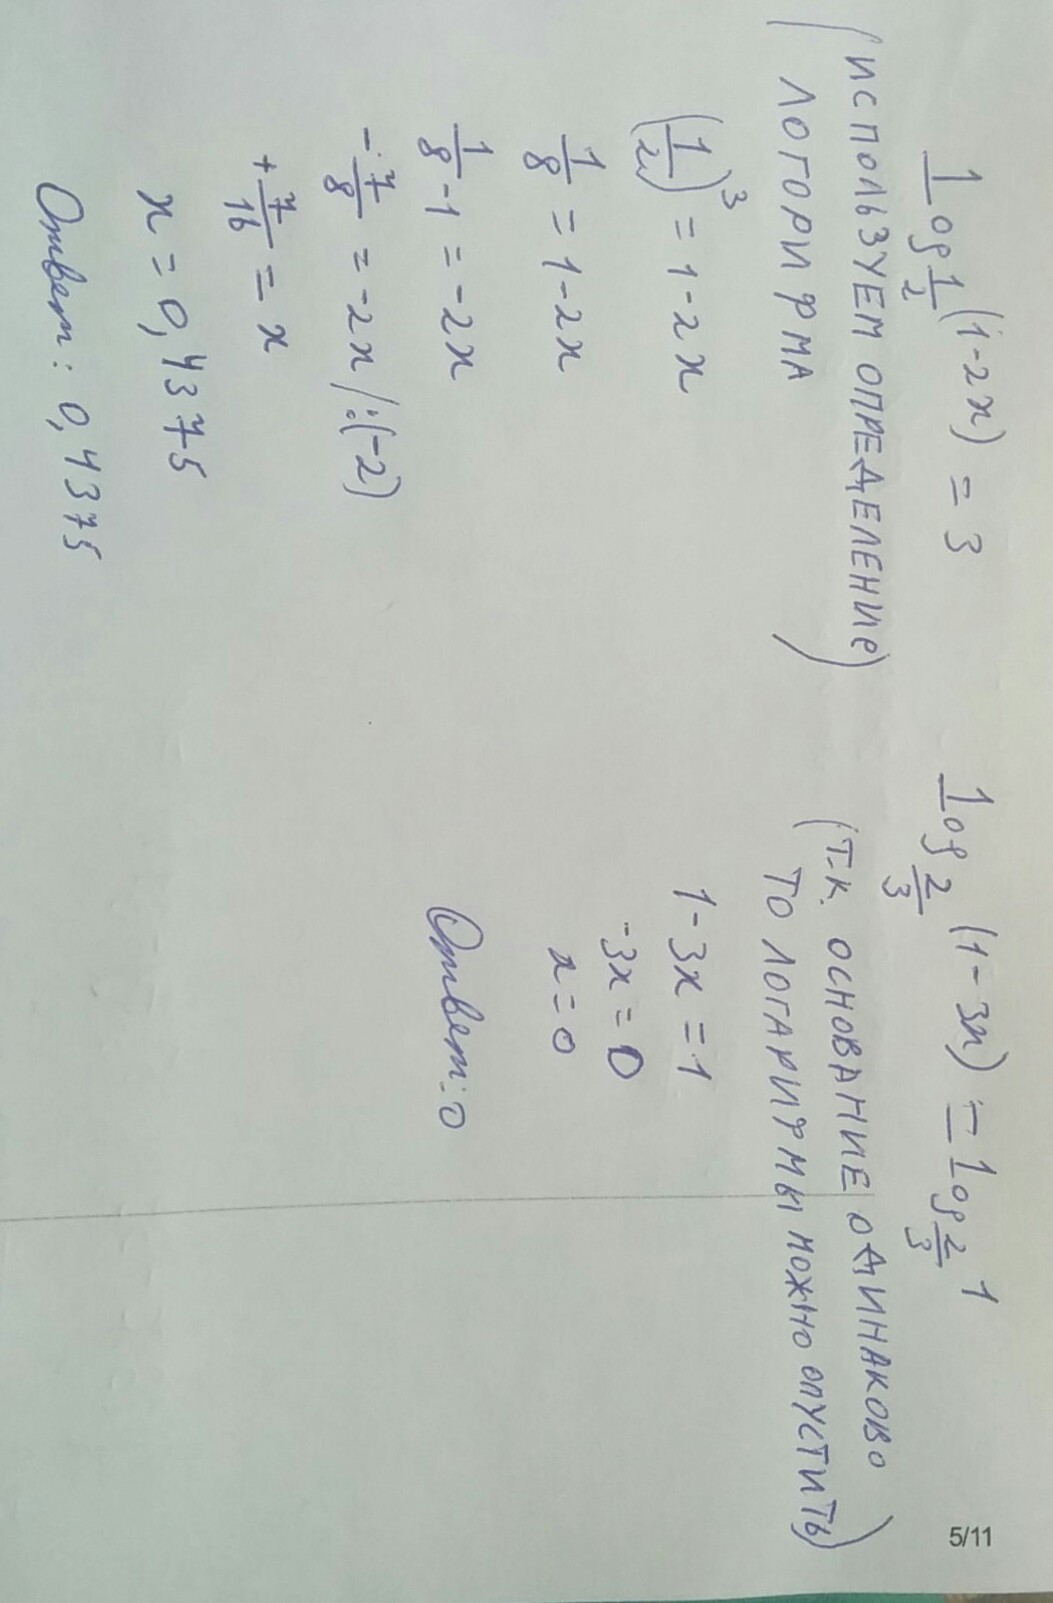 log 1/2 (1-2x) = 3
(ИСПОЛЬЗУЕМ ОПРЕДЕЛЕНИЕ)
ЛОГОРИФМА )
(1/2)^3 = 1-2x
1/8 = 1-2x
1/8 - 1 = -2x
-7/8 = -2x /:(-2)
+7/16 = x
x = 0,4375
Ответ: 0,4375
log 2/3 (1-3x) = log 2/3 1
(Т.К. ОСНОВАНИЕ ОДИНАКОВО
ТО ЛОГАРИФМЫ МОЖНО ОПУСТИТЬ)
1-3x = 1
-3x = 0
x = 0
Ответ: 0
5/11